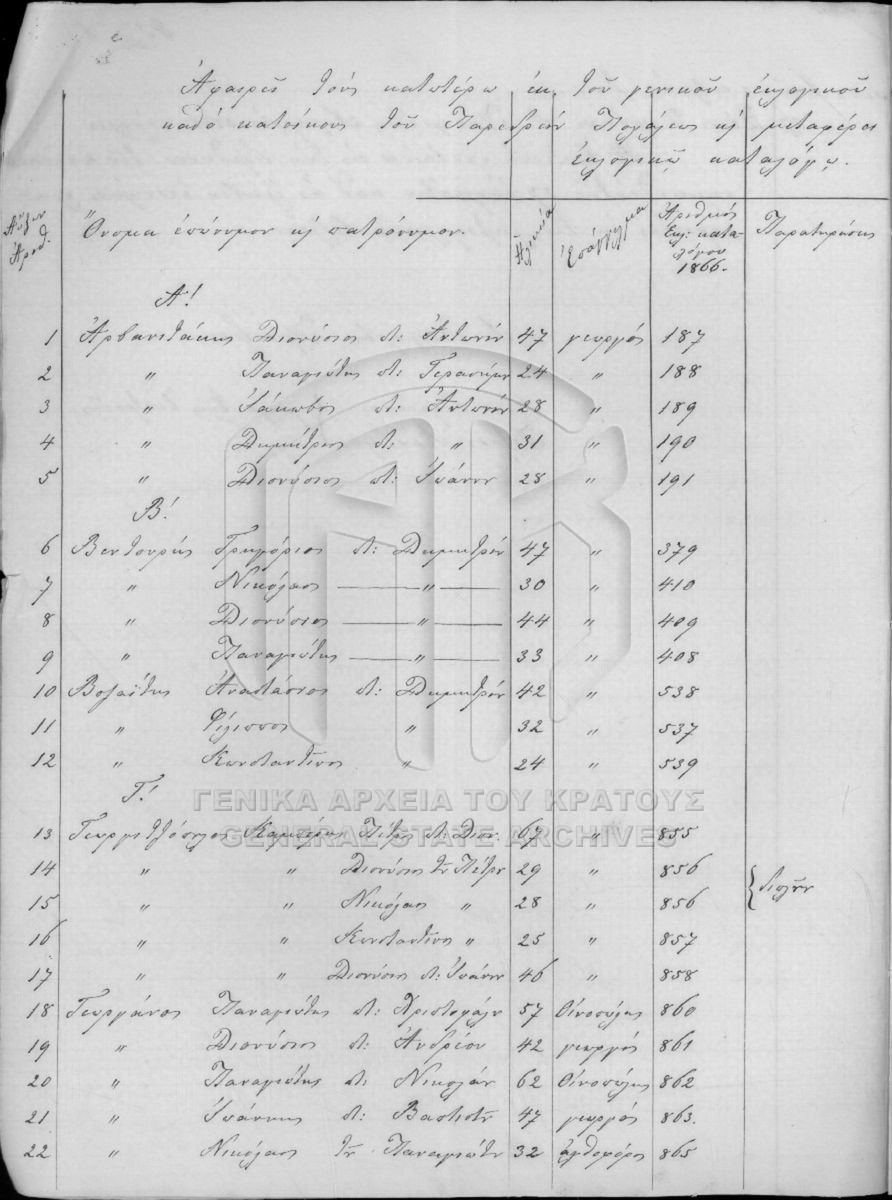 Ἀφαιρεῖ τοὺς κατωτέρω ἐκ τοῦ γενικοῦ ἐκλογικοῦ
καθὸ κατοίκους τοῦ κỳ μεταφέρει
ἐκλογικῷ καταλόγῳ.
Αὔξων Ἀριθ. Ὄνομα ἐπώνυμον κỳ πατρώνυμον. Ἡλικία Ἐπάγγελμα Ἀριθμὸς Ἐκλ: καταλόγου 1866. Παρατηρήσεις
Α!
1 Ἀρβανιτάκης Διονύσιος π: Ἀντωνίου 47 γεωργός 187
2 " Παναγιώτης π: Γερασίμου 24 " 188
3 " Ἰάκωβος π: Ἀντωνίου 28 " 189
4 " Δημήτριος π: " 31 " 190
5 " Διονύσιος π: Ἰωάννου 28 " 191
Β!
6 Βεντουρῆς Γρηγόριος π: Δημητρίου 47 " 379
7 " Νικόλαος — " — 30 " 410
8 " Διονύσιος — " — 44 " 409
9 " Παναγιώτης — " — 33 " 408
10 Βολαΐτης Ἀναστάσιος π: Δημητρίου 42 " 538
11 " Φίλιππος " 32 " 537
12 " Κωνσταντῖνος " 24 " 539
Γ!
ΓΕΝΙΚΑ ΑΡΧΕΙΑ ΤΟΥ ΚΡΑΤΟΥΣ
13 Πέτρος π: Διον. 67 " 855
GENERAL STATE ARCHIVES
14 " " Διονύσιος τοῦ Πέτρου 29 " 856
15 " " Νικόλαος " 28 " 856
16 " " Κωνσταντῖνος " 25 " 857
17 " " Διονύσιος π: Ἰωάννου 46 " 858
18 Γεωργάνος Παναγιώτης π: 57 Οἰνοπώλης 860
19 " Διονύσιος π: Ἀνδρέου 42 γεωργός 861
20 " Παναγιώτης π: Νικολάου 62 Οἰνοπώλης 862
21 " Ἰωάννης π: 47 γεωργός 863.
22 " Νικόλαος τοῦ Παναγιώτου 32 ἀχθοφόρος 865